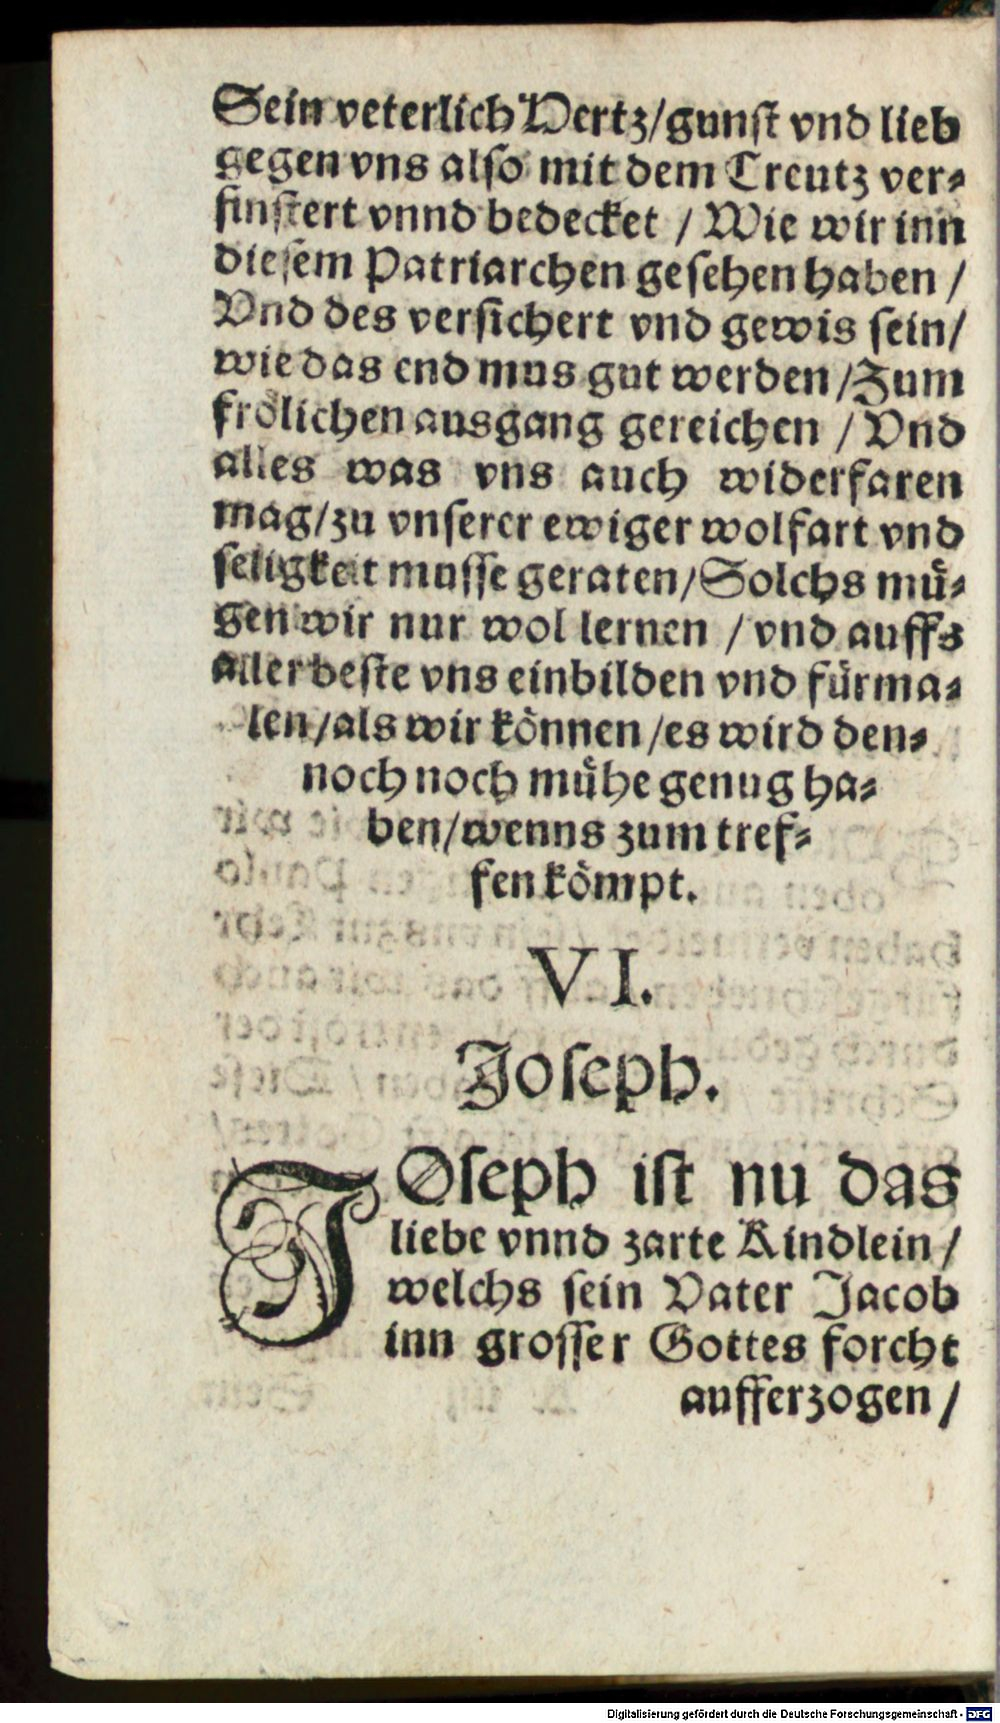 Sein veterlich Hertz/gunst vnd lieb
gegen vns also mit dem Creutz ver⸗
finstert vnnd bedecket / Wie wir inn
diesem Patriarchen gesehen haben /
Vnd des versichert vnd gewis sein/
wie das end mus gut werden/Zum
frölichen ausgang gereichen / Vnd
alles was vns auch widerfaren
mag/zu vnserer ewiger wolfart vnd
seligkeit musse geraten/Solchs mü⸗
gen wir nur wol lernen / vnd auffs
aller beste vns einbilden vnd fürma⸗
len/als wir können/es wird den⸗
noch noch mühe genug ha⸗
ben/wenns zum tref⸗
fen kömpt.
VI.
Joseph.
JOseph ist nu das
liebe vnnd zarte Kindlein/
welchs sein Vater Jacob
inn grosser Gottes forcht
aufferzogen/
Digitalisierung gefördert durch die Deutsche Forschungsgemeinschaft - DFG